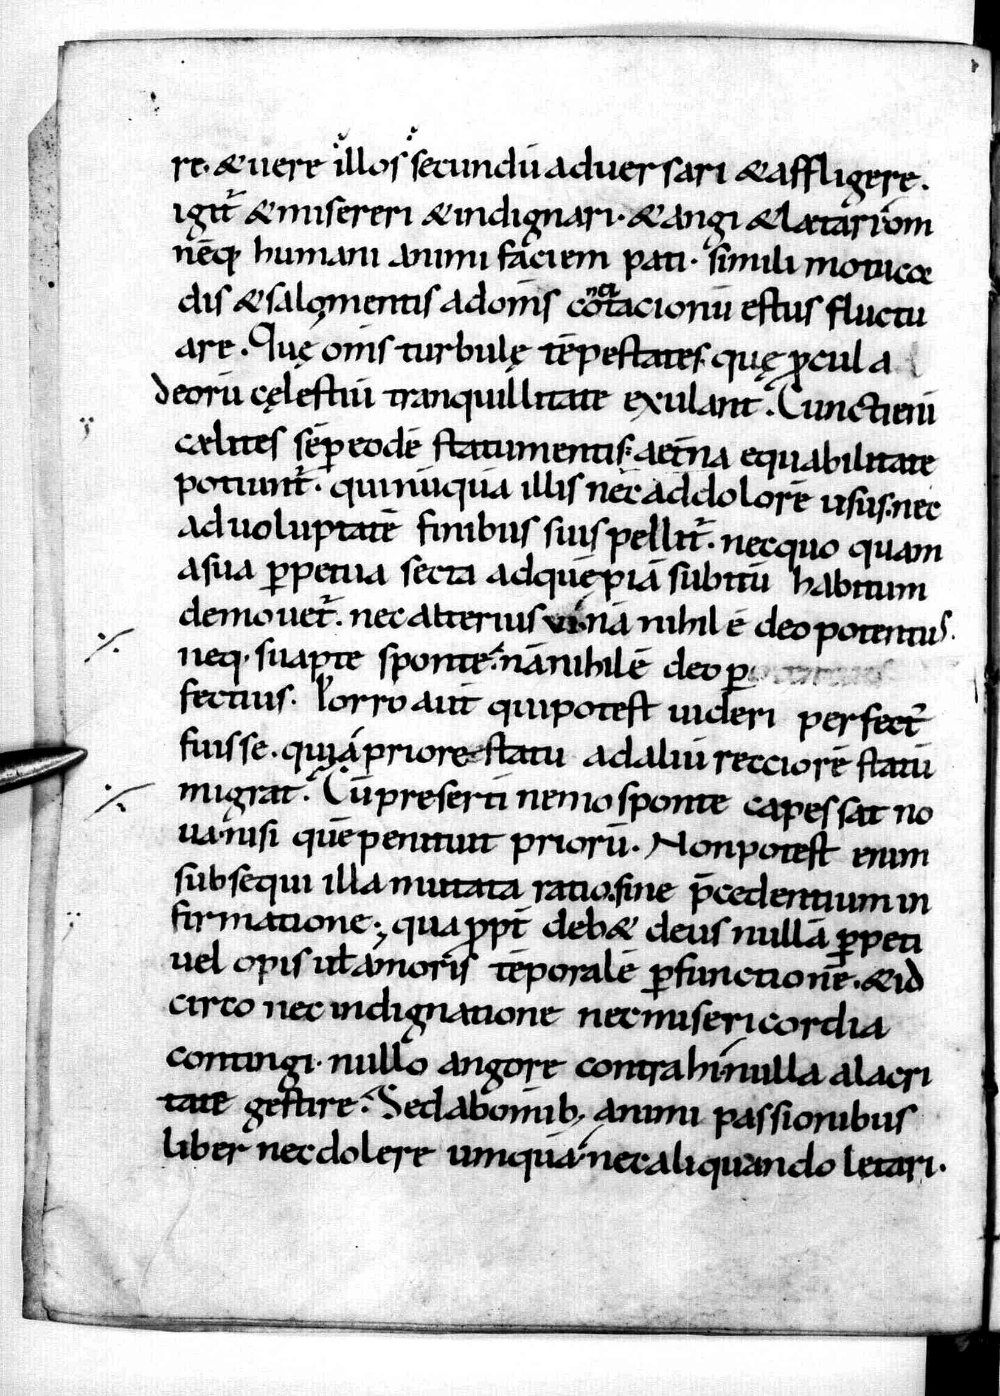 re. &uere illos secundū aduersari &affligere.
igit̃ &misereri &indignari. &angi &lætari om
nēq; humani animi faciem pati. simili motu coꝛ
dis &salo mentis ad om̄s cogitacionū estus fluctu
are. Quę om̄s turbulę tēpestates. quę ꝓcul a
deorū cęlestiū tranquillitate exulant. Cuncti eni
cælites sēꝑ eodē statu mentis. aet̄na equabilitate
potiunt̃. qui nūquā illis nec ad dolorē usus. nec
ad uoluptatē finibus suis pellit̃. nec quo quam
a sua ꝑpetua secta ad quēpiā subitū habitum
demouet̃. nec alterius ui. nā nihil ē deo potentius.
neq. suapte sponte. nā nihil ē deo ꝑ
fectius. Porro aut̄ qui potest uideri perfect̃
fuisse. qui a priore statu ad aliū recciorē statū
migrat. Cū preserti nemo sponte capessat no
ua. nisi quē penituit priorū. Non potest enim
subsequi illa mutata ratio. sine p̄cedentium in
firmatione. qua ꝓpt̄ deb& deus nullā ꝑpeti
uel opis ul̄ amoris tēporalē ꝑfunctionē. &id
circo nec indignatione nec misericordia
contingi. nullo angore contrahi. nulla alacri
tate gestire. Sed ab omib; animi passionibus
liber nec dolere umquā. nec aliquando letari.